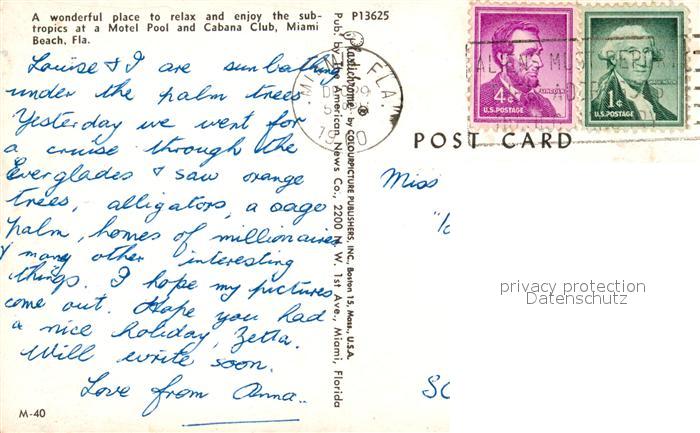 A wonderful place to relax and enjoy the sub-
tropics at a Motel Pool and Cabana Club, Miami
Beach, Fla.
P13625
Louise & I are sunbathing
under the palm trees
Yesterday we went for
a cruise through the
Everglades & saw orange
trees, alligators, a sago
palm, homes of millionaires
& many other interesting
things. I hope my pictures
come out. Hope you had
a nice holiday, Zetta.
Will write soon.
Love from Anna..
M-40
Plastichrome ® by COLOURPICTURE PUBLISHERS, INC., Boston 15, Mass., U.S.A.
Pub. by The American News Co., 2200 N.W. 1st Ave., Miami, Florida
MIAMI, FLA.
1960
4¢
LINCOLN
U.S. POSTAGE
1¢
WASHINGTON
U.S. POSTAGE
POST CARD
Miss
privacy protection
Datenschutz